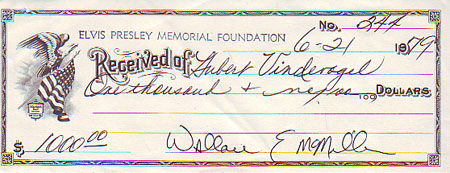 ELVIS PRESLEY MEMORIAL FOUNDATION
No. 244
6-21 1979
Received of Hubert Vindevogel
One thousand + no/oo 100 DOLLARS
$ 1000.00
Wallace E McMillen